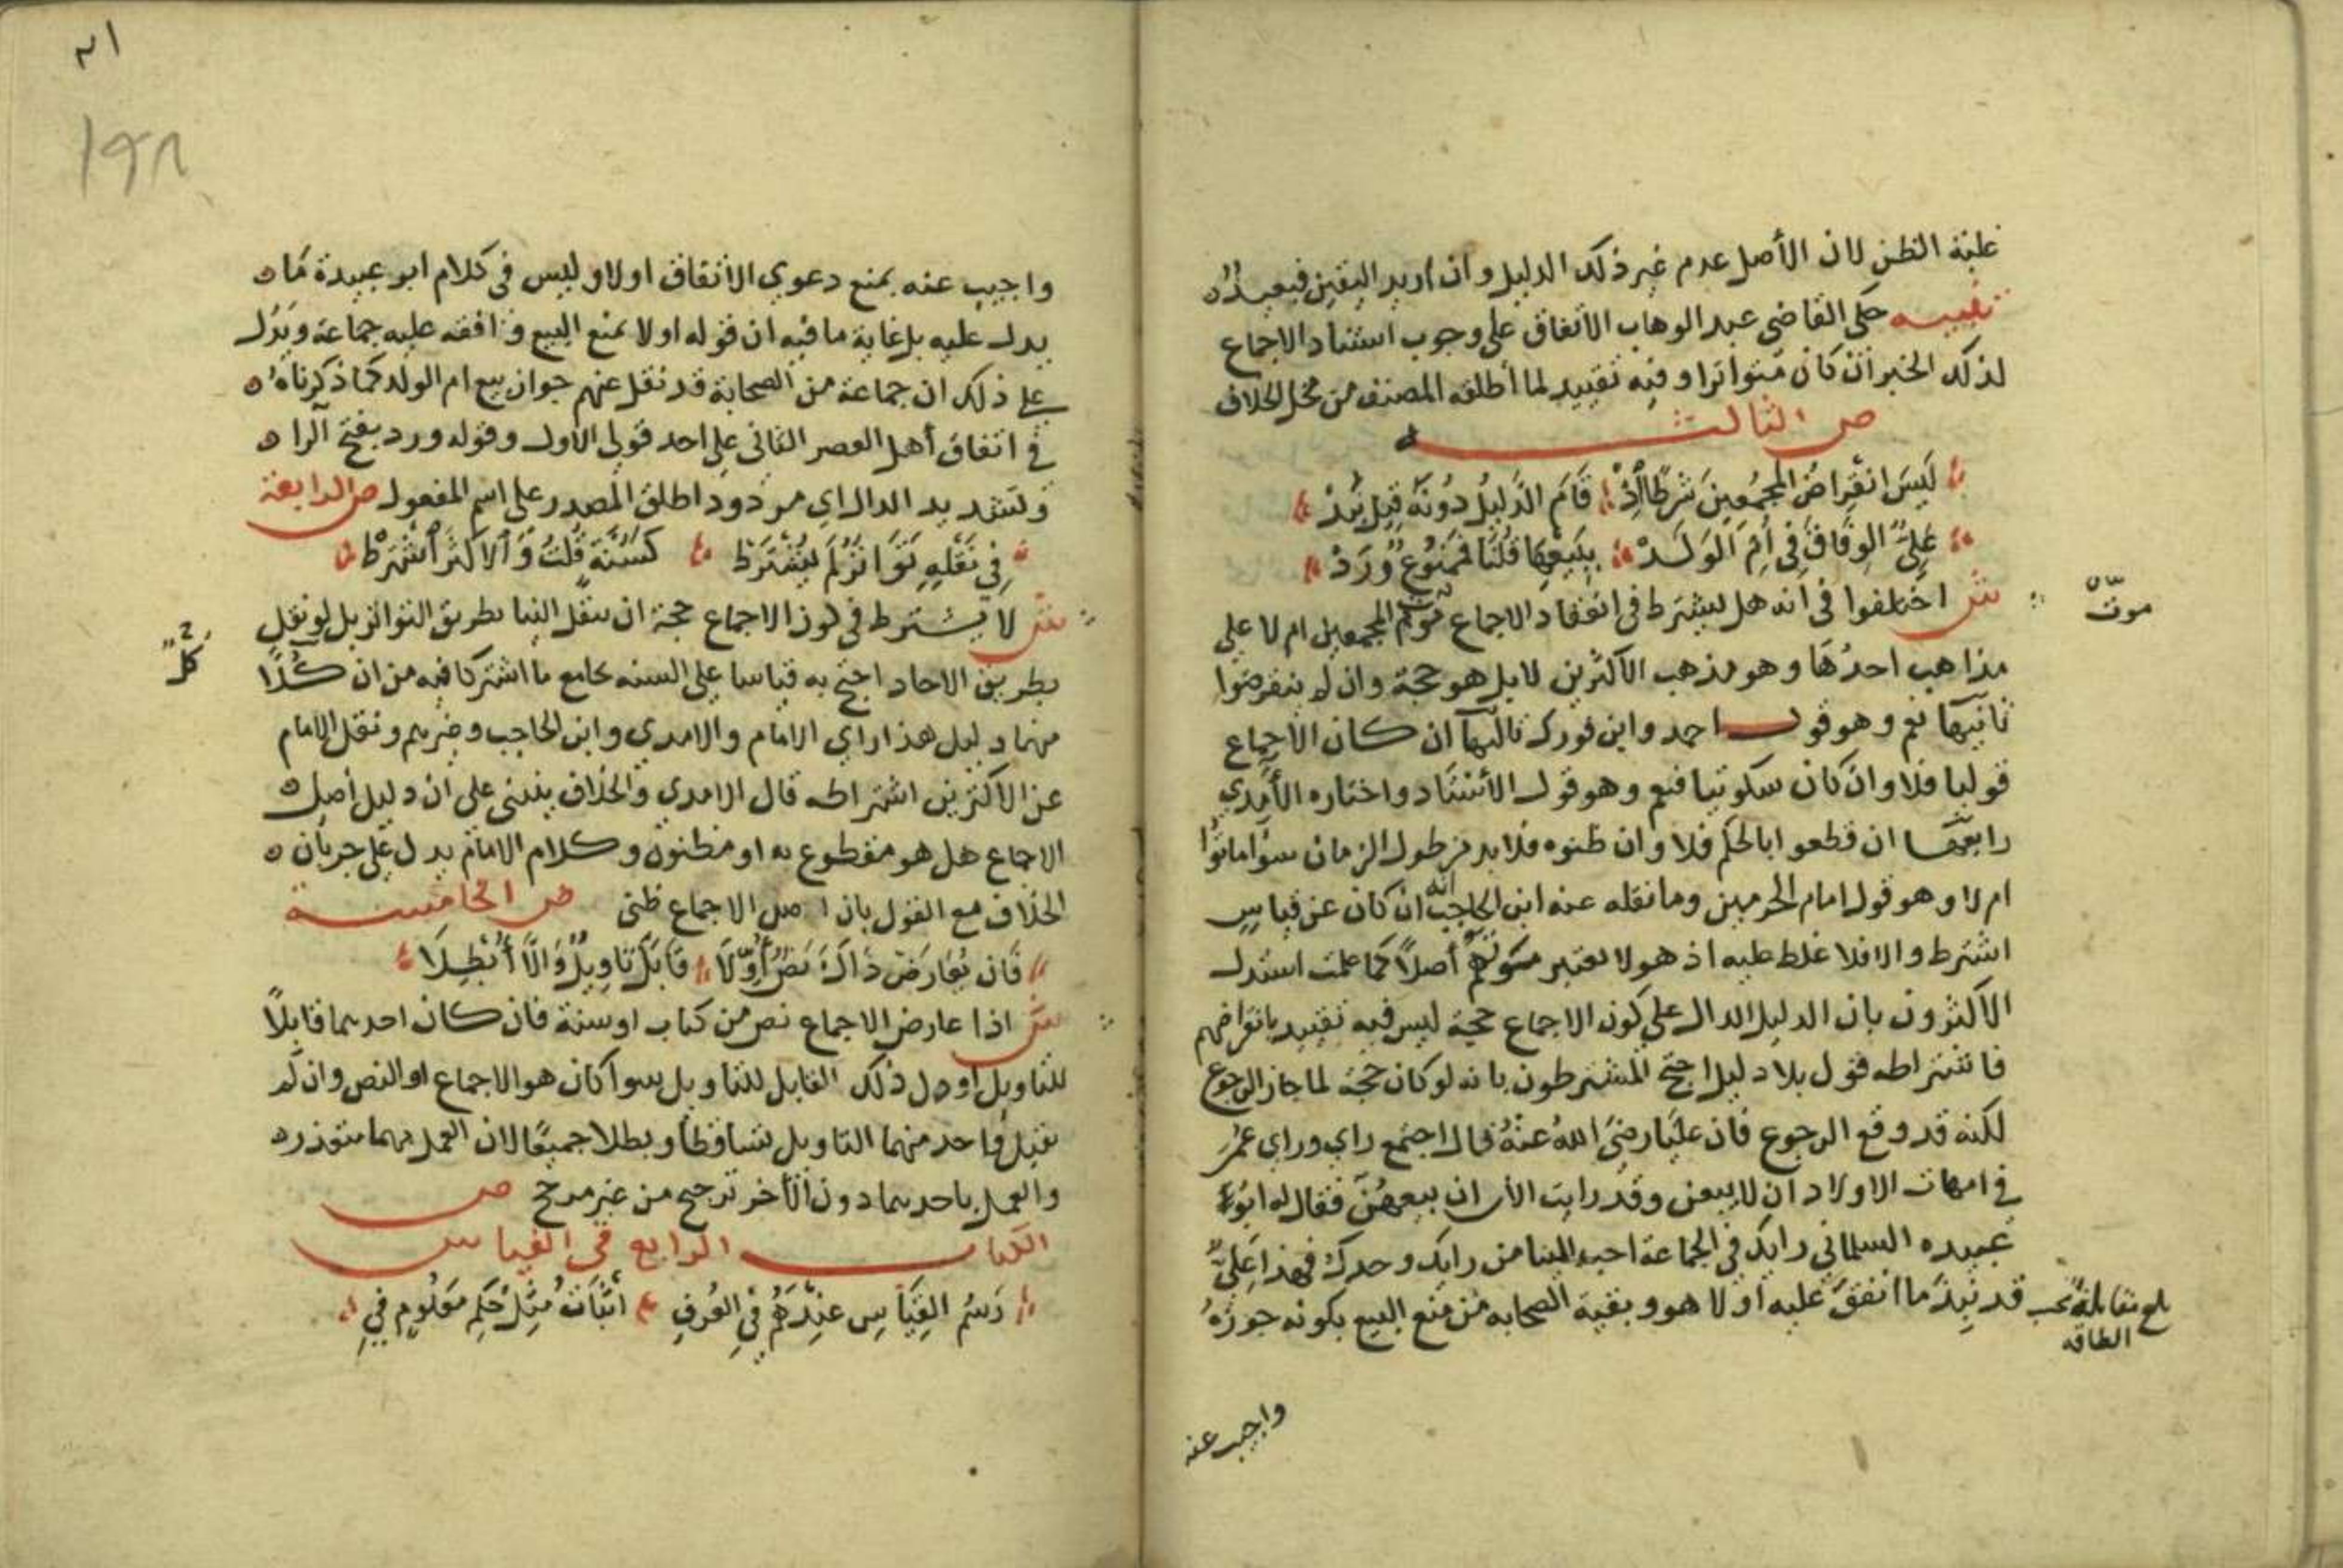 غلبة الظن لان الأصل عدم غير ذلك الدليل وان اريد اليقين فبعيد
تنبيه حكى القاضى عبد الوهاب الاتفاق على وجوب استناد الاجماع
لذلك الخبر ان كان متواترا وفيه تقييد لما أطلقه المصنف من محل الخلاف
ص الثالثه
لَيسَ انقِراضُ المجمِعينَ شرطًا اِذْ قَامَ الدَّليلُ دُونَهُ قيل نبذْ
عَلِيٌّ الوِفَاقَ فِي أُمِّ الوَلَدْ بِبَيعِهَا قُلنَا فَمَمنُوعٌ وَرَدْ
ش اختلفوا فى انه هل يشترط فى انعقاد الاجماع موتهم المجمعين ام لا على
موت
مذاهب احدُهَا وهو مذهب الاكثرين لا بل هو حجة وان لم ينقرضوا
ثانيها نعم وهو قول احمد وابن فورك ثالثها ان كان الاجماع
قوليا فلا وان كان سكوتيا فنعم وهو قول الأستاد واختاره الأمدي
رابعها ان قطعوا بالحكم فلا وان ظنوه فلا بد من طول الزمان سوا ماتوا
ام لا وهو قول امام الحرمين وما نقله عنه ابن الحاجب انه ان كان عن قياس
اشترط والا فلا غلط عليه اذ هو لا يعتبر موتهم أصلاً كما علمت استدل
الاكثرون بان الدليل الدال على كون الاجماع حجة ليس فيه تقييد بانقراضهم
فاشتراطه قول بلا دليل احتج المشترطون بانه لو كان حجة لما جاز الرجوع
لكنه قد وقع الرجوع فان عليا رضىَ اللهُ عنْهُ قال اجتمع راي وراي عمرُ
فى امهات الاولاد ان لا يبعن وقد رايت الأن ان بيعهن فقال له ابو
عبيده السلمانى رايك فى الجماعة احب الينا من رايك وحدك فهذا علىٌّ
قد نبذَ ما اتفقَ عليه أولا هو وبقية الصحابه من منع البيع بكونه جوزهُ
بلغ مقابلة بحسب
الطاقه
واجيب عنه
١٩٨
واجيب عنه بمنع دعوي الاتفاق اولا وليس فى كلام ابو عبيدة ما
يدل عليه بل غاية ما فيه ان قوله اولا بمنع البيع وافقه عليه جماعة ويدُل
على ذلك ان جماعة من الصحابة قد نقل عنهم جواز بيع ام الولد كما ذكرناه
فى اتفاق أهل العصر الثانى على احد قولى الأول وقوله ورد بفتح الرا
وتشديد الدال اي مردود اطلق المصدر على اسم المفعول ص الرابعة
فِي نَقْلِهِ تَوَاتُرٌ لَم يُشْتَرَطْ كَسُنَّةٍ قُلتُ وَالاَكثَرُ اشْتَرَطْ
ش لا يشترط فى كون الاجماع حجة ان ينقل الينا بطريق التواتر بل لو نقل
بطريق الاحاد احتج به قياسا على السنه بجامع ما اشتركا فيه من ان كُلًّا
كل
منهما دليل هذا راي الامام والامدي وابن الحاجب وغيرهم ونقل الإمام
عن الاكثرين اشتراطه قال الامدي والخلاف ينبنى على ان دليل أصل
الاجماع هل هو مقطوع به او مظنون وكلام الامام يدل على جريان
الخلاف مع القول بان اصل الاجماع ظنى ص الخامسة
فَاِن يُعَارَض ذَاكَ نَصٌّ أُوِّلَا قَابَلَ تَاوِيلٌ وَاِلَّا أُبْطِلَا
ش اذا عارض الاجماع نص من كتاب او سنة فان كان احدهما قابلاً
للتاويل اول ذلك القابل للتاويل سوا كان هو الاجماع او النص وان لم
يقبل واحد منهما التاويل تساقطا وبطلا جميعًا لان العمل بهما متعذر
والعمل باحدهما دون الأخر ترجيح من غير مرجح ص
الكتاب الرابع فى القياس
رَسْمُ القِيَاسِ عِنْدَهُمْ فِي العُرفِ اثْبَاتُ مِثْلِ حُكمِ مَعْلُومٍ فِي